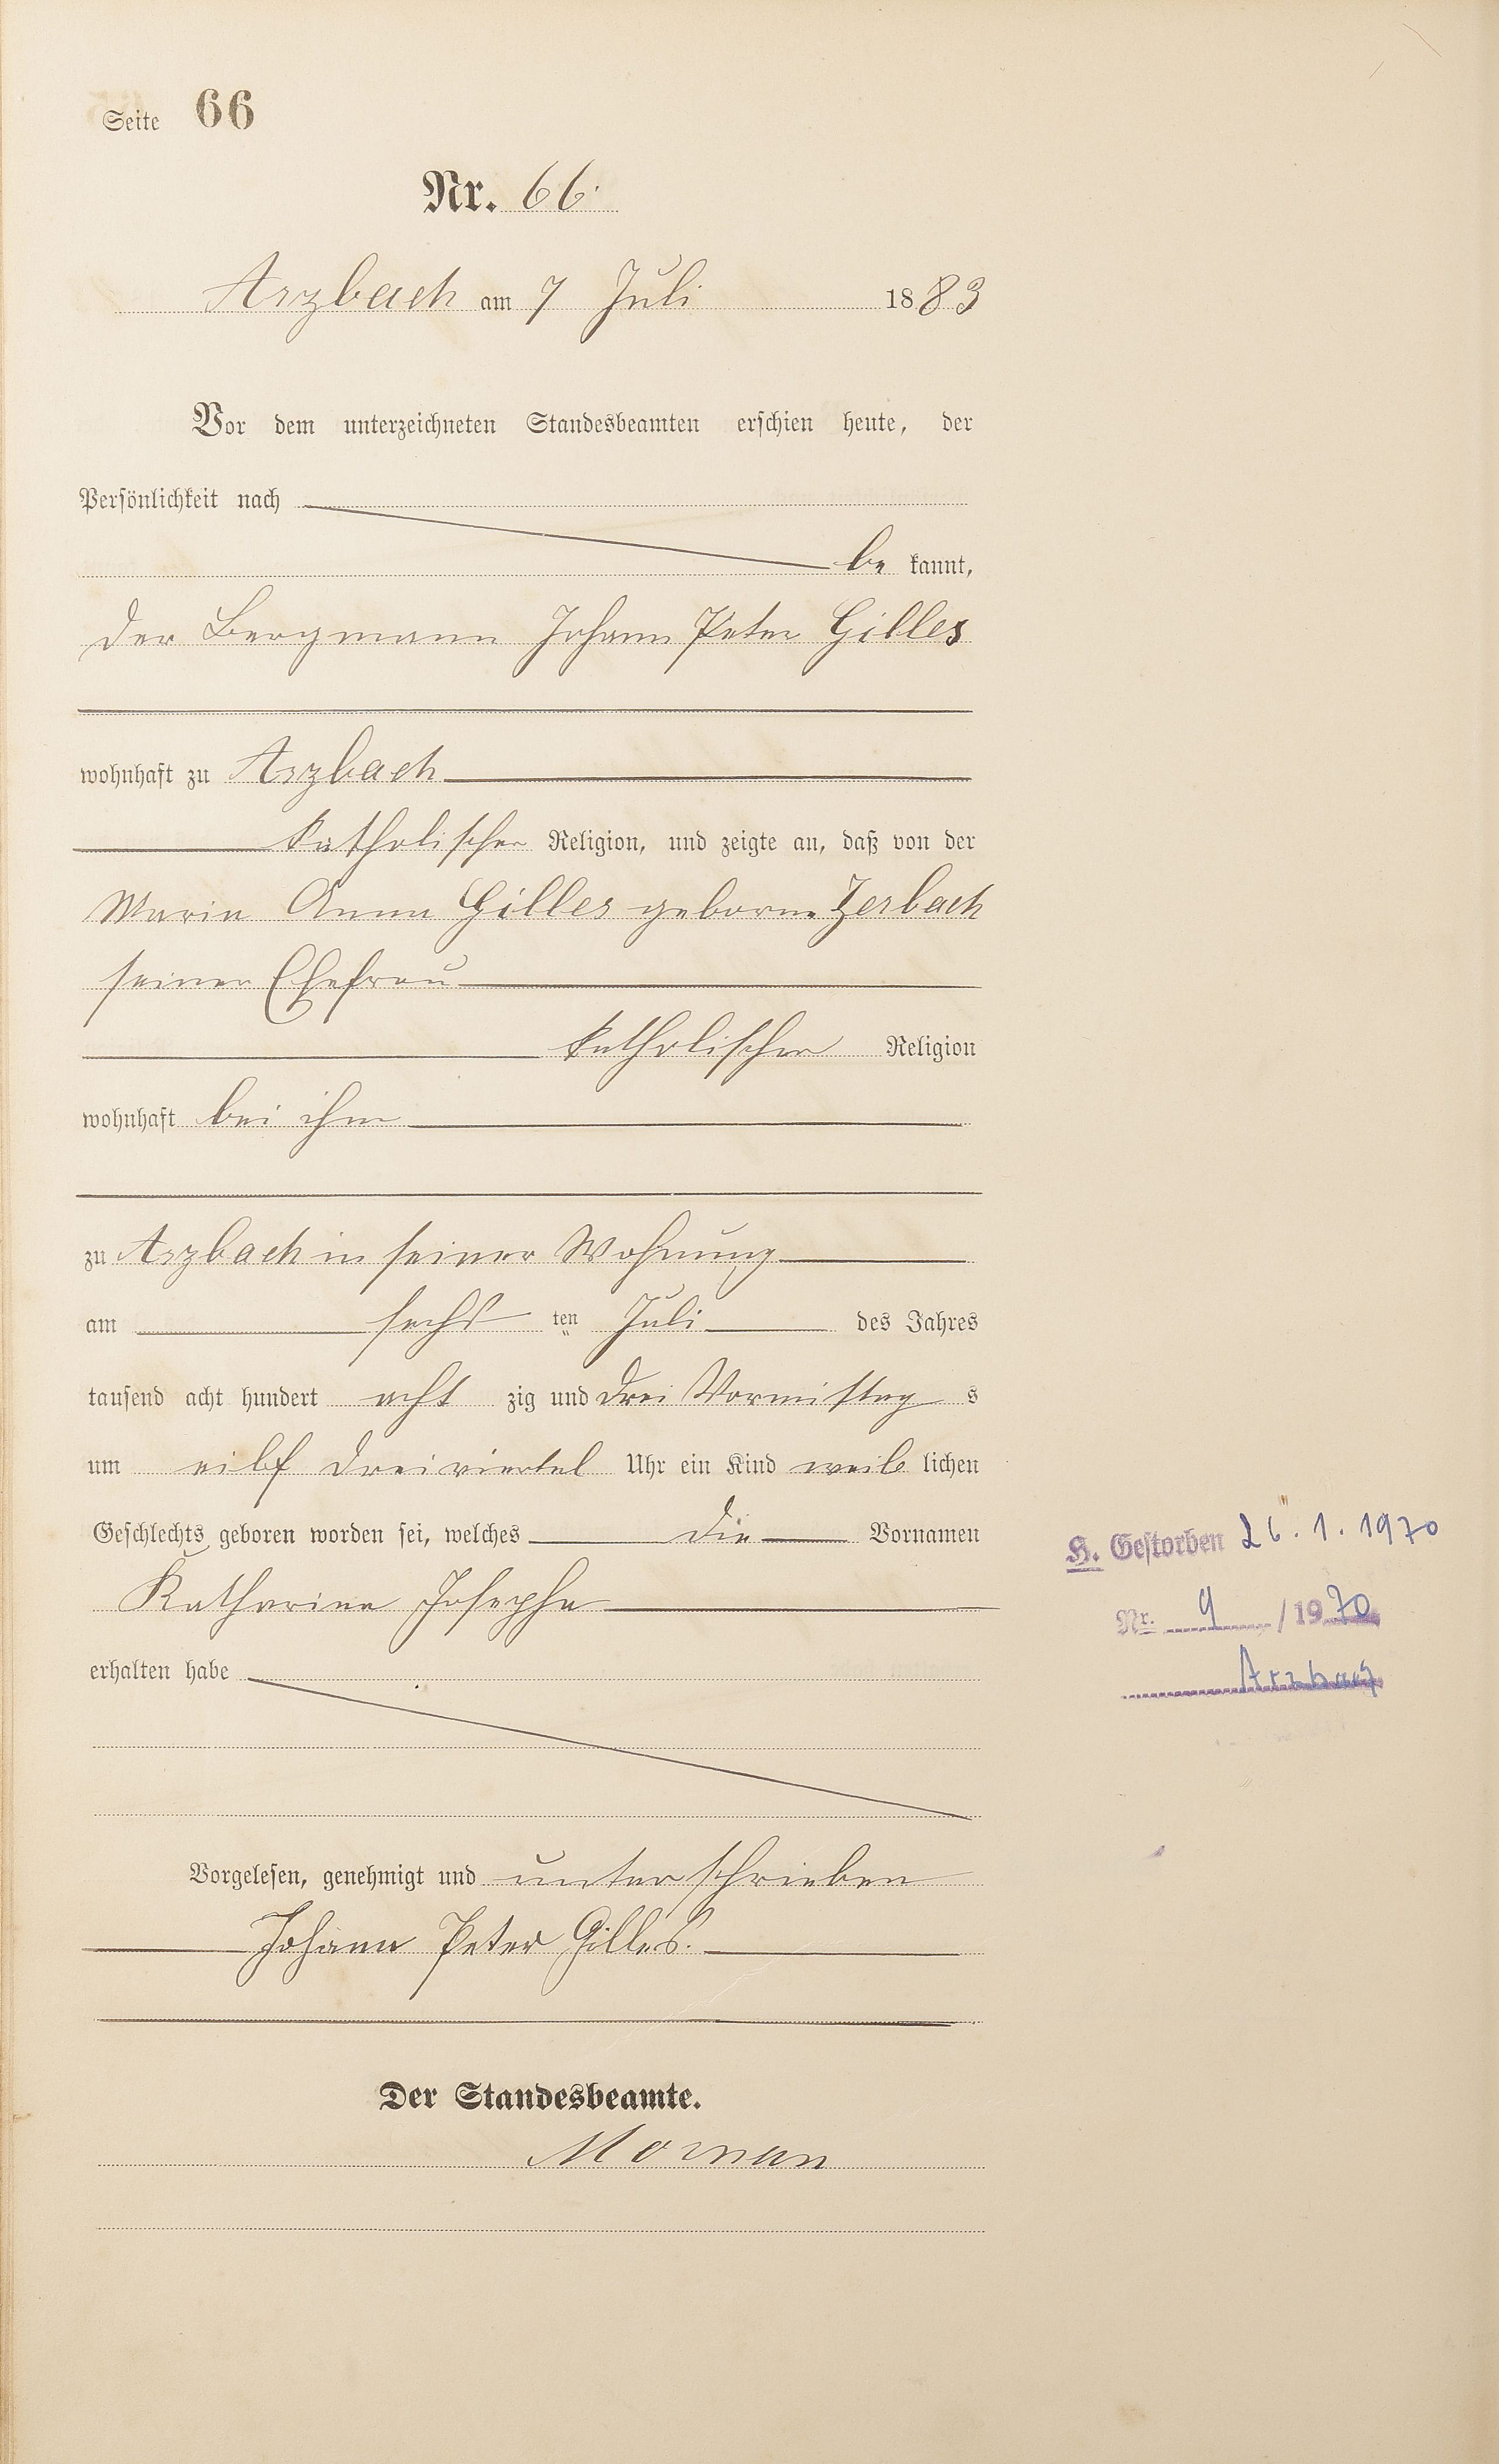 Seite 66
Nr. 66.
Arzbach am 7 Juli 1883
Vor dem unterzeichneten Standesbeamten erschien heute, der
Persönlichkeit nach
be kannt,
der Bergmann Johann Peter Gilles
wohnhaft zu Arzbach
katholischer Religion, und zeigte an, daß von der
Maria Anna Gilles geborne Zerbach
seiner Ehefrau
katholischer Religion
wohnhaft bei ihm
zu Arzbach in seiner Wohnung
am sechsten Juli des Jahres
tausend acht hundert acht zig und drei Vormittag s
um eilf dreiviertel Uhr ein Kind weib lichen
Geschlechts geboren worden sei, welches die Vornamen
Katharina Josepha
erhalten habe
Vorgelesen, genehmigt und unterschrieben
Johann Peter Gilles.
Der Standesbeamte.
Mornan
H. Gestorben 26.1.1970
Nr. 9 / 1970
Arzbach